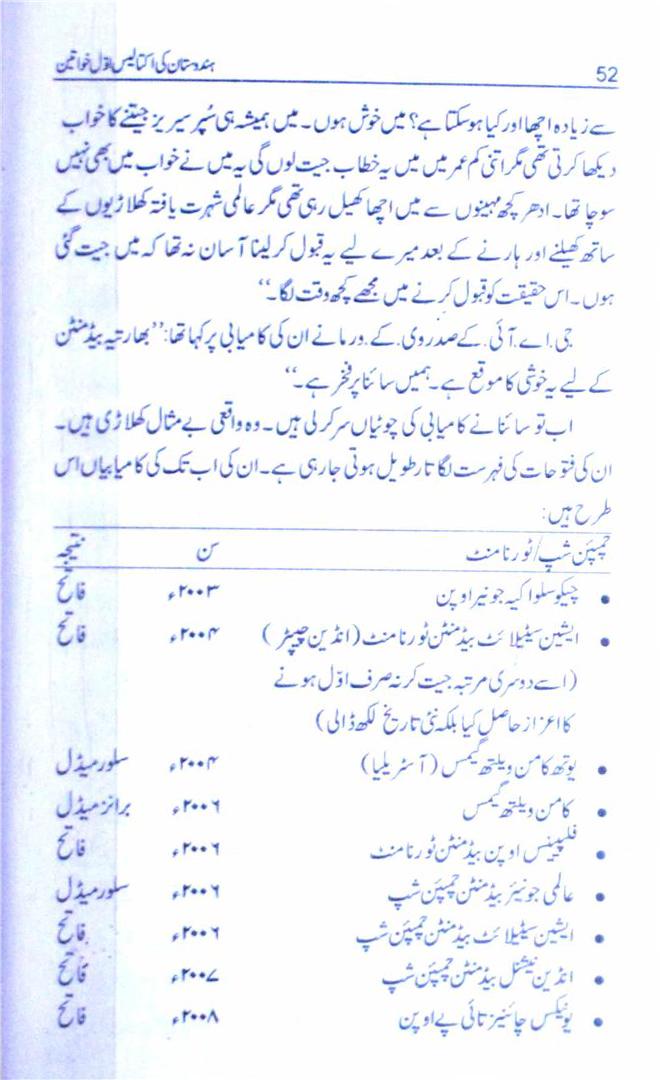 52
ہندوستان کی اکتالیس اوّل خواتین
سے زیادہ اچھا اور کیا ہو سکتا ہے؟ میں خوش ہوں۔ میں ہمیشہ ہی سُپر سیریز جیتنے کا خواب
دیکھا کرتی تھی مگر اتنی کم عمر میں میں یہ خطاب جیت لوں گی یہ میں نے خواب میں بھی نہیں
سوچا تھا۔ ادھر کچھ مہینوں سے میں اچھا کھیل رہی تھی مگر عالمی شہرت یافتہ کھلاڑیوں کے
ساتھ کھیلنے اور ہارنے کے بعد میرے لیے یہ قبول کر لینا آسان نہ تھا کہ میں جیت گئی
ہوں۔ اس حقیقت کو قبول کرنے میں مجھے کچھ وقت لگا۔‘‘
جی.اے.آئی. کے صدر وی. کے. ورما نے ان کی کامیابی پر کہا تھا: ’’بھارتیہ بیڈمنٹن
کے لیے یہ خوشی کا موقع ہے۔ ہمیں سائنا پر فخر ہے۔‘‘
اب تو سائنا نے کامیابی کی چوٹیاں سر کر لی ہیں۔ وہ واقعی بے مثال کھلاڑی ہیں۔
ان کی فتوحات کی فہرست لگاتار طویل ہوتی جا رہی ہے۔ ان کی اب تک کی کامیابیاں اس
طرح ہیں:
چمپئن شپ/ٹورنامنٹ سن نتیجہ
• چیکوسلواکیہ جونیر اوپن ۲۰۰۳ء فاتح
• ایشین سیٹیلائٹ بیڈمنٹن ٹورنامنٹ (انڈین چیپٹر) ۲۰۰۴ء فاتح
(اسے دوسری مرتبہ جیت کر نہ صرف اوّل ہونے
کا اعزاز حاصل کیا بلکہ نئی تاریخ لکھ ڈالی)
• یوتھ کامن ویلتھ گیمس (آسٹریلیا) ۲۰۰۴ء سلور میڈل
• کامن ویلتھ گیمس ۲۰۰۶ء برانز میڈل
• فلپینس اوپن بیڈمنٹن ٹورنامنٹ ۲۰۰۶ء فاتح
• عالمی جونیئر بیڈمنٹن چمپئن شپ ۲۰۰۶ء سلور میڈل
• ایشین سیٹیلائٹ بیڈمنٹن چمپئن شپ ۲۰۰۶ء فاتح
• انڈین نیشنل بیڈمنٹن چمپئن شپ ۲۰۰۷ء فاتح
• یونیکس چائنیز تائی پے اوپن ۲۰۰۸ء فاتح